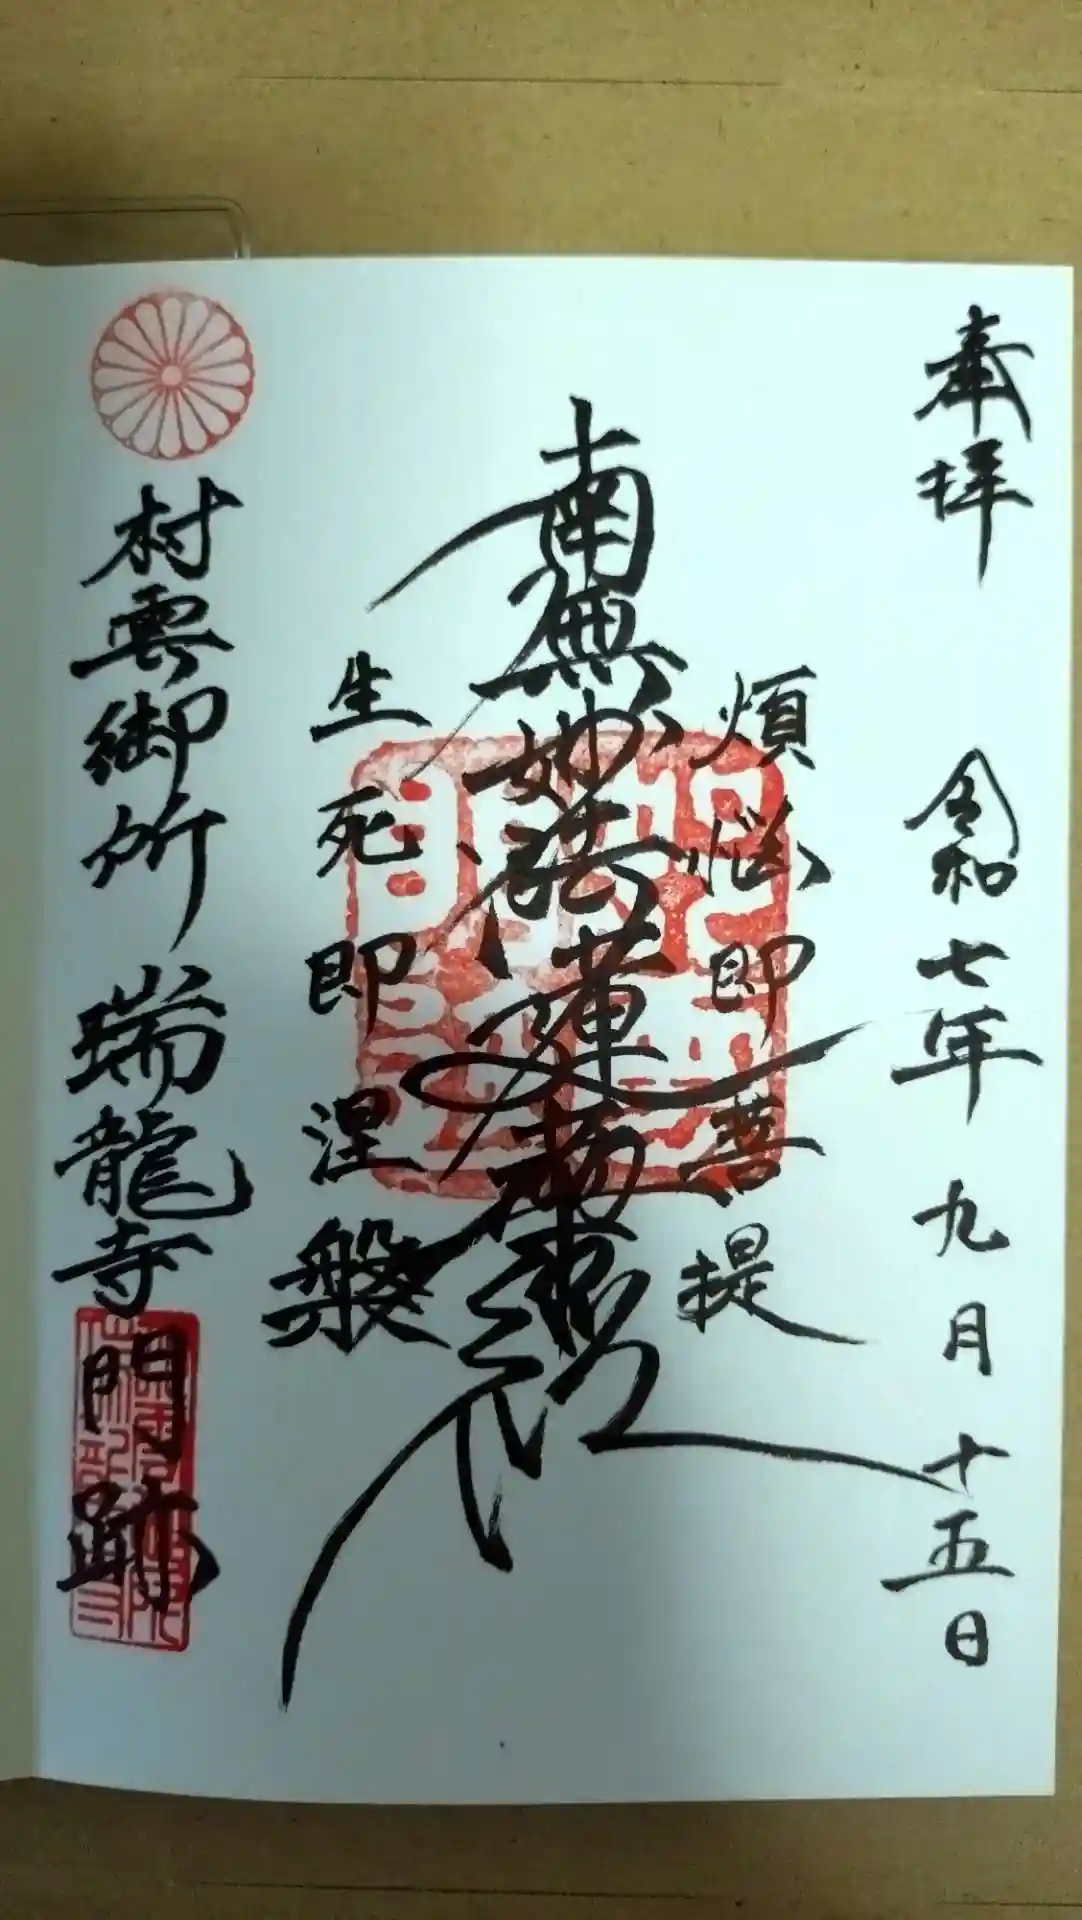 奉拝 令和七年 九月 十五日
煩悩即菩提
南無妙法蓮華経
生死即涅槃
村雲御所 瑞龍寺門跡